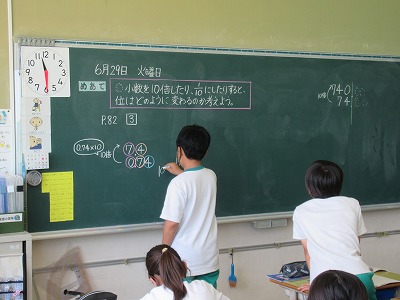 6月29日 火曜日
めあて
小数を10倍したり、1/10にしたりすると、
位はどのように変わるのか考えよう。
P.82 3
0.74×10
10倍
7.4
0.74
10倍
740
74